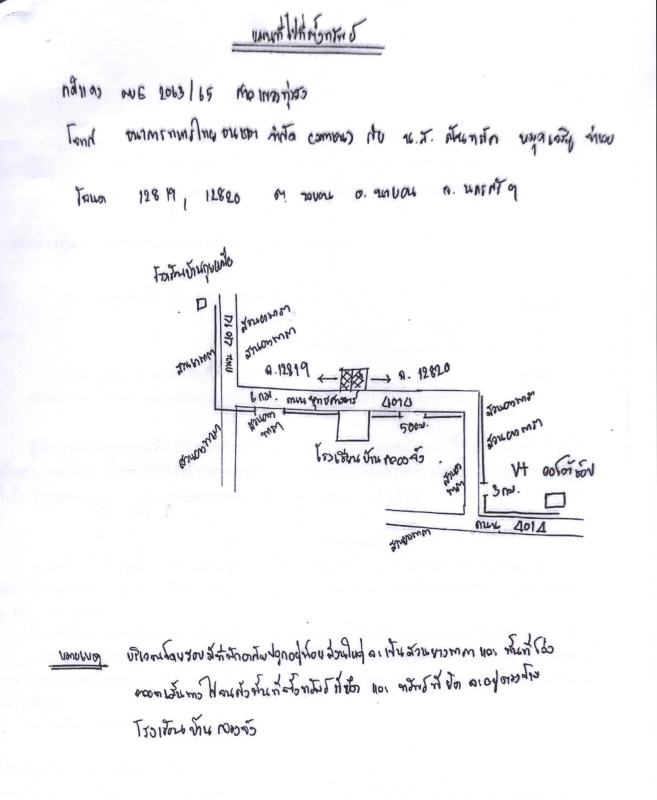 แผนที่ไปที่ตั้งทรัพย์
คดีแดง ผบE 2063/65 ศาลแขวงทุ่งสง
โจทก์ ธนาคารทหารไทยธนชาต จำกัด (มหาชน) กับ น.ส.
โฉนด 12819, 12820 ต. นาบอน อ. นาบอน จ. นครศรีฯ
โรงเรียนบ้าน
ถนน
สวนยางพารา
สวนยางพารา
สวนยางพารา
ฉ.12819 ← → ฉ. 12820
6 กม. ถนน ยุทธศาสตร์ 4014
สวนยางพารา
สวนยางพารา
500ม.
สวนยางพารา
สวนยางพารา
โรงเรียนบ้านคลองจัง
สวนยางพารา
V+ ออโต้ช็อป
3 กม.
ถนน 4014
สวนยางพารา
หมายเหตุ บริเวณโดยรอบมีที่พักอาศัยปลูกอยู่น้อยส่วนใหญ่จะเป็นสวนยางพารา และ พื้นที่โล่ง
ตลอดเส้นทางไปจนถึงพื้นที่ตั้งทรัพย์ที่ยึด และ ทรัพย์ที่ยึด จะอยู่ตรงข้าม
โรงเรียนบ้านคลองจัง